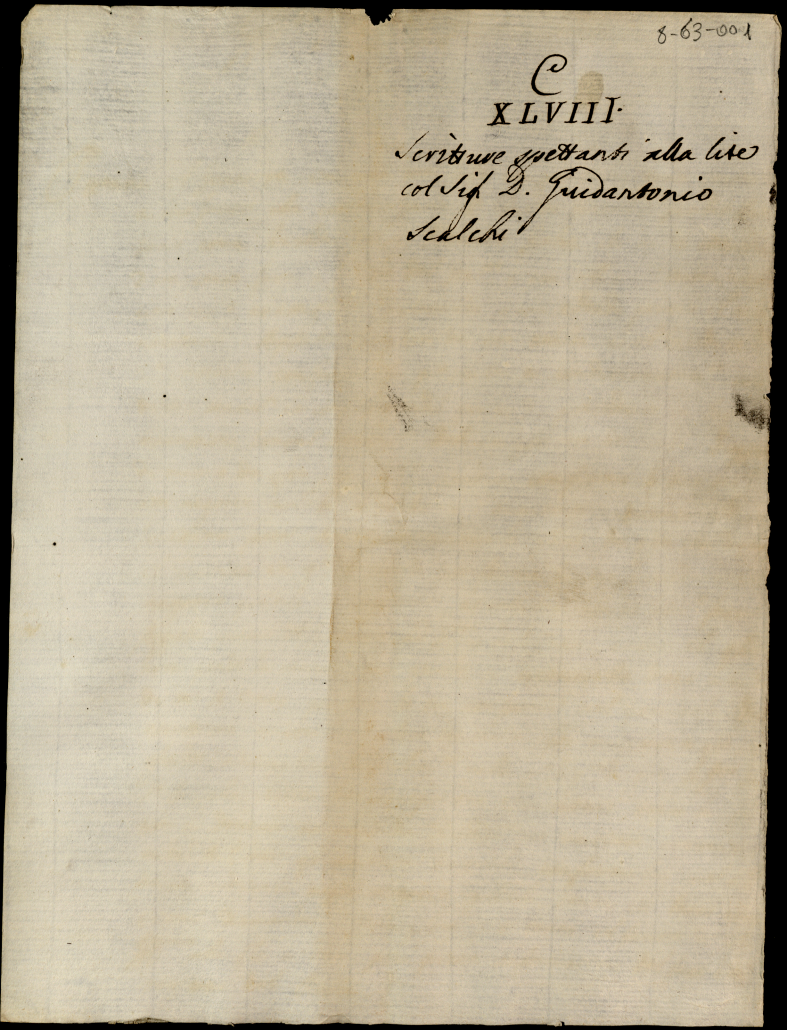 8-63-001
C
XLVIII.
Scritture spettanti alla lite
col Sig.r D. Guidantonio
Scalchi